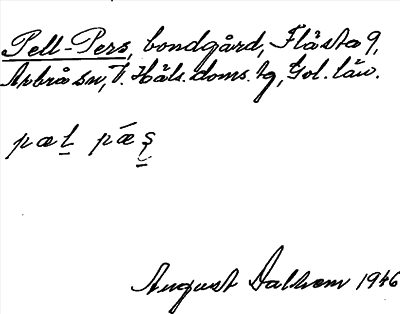 Pell-Pers, bondgård, Flästa 9,
Arbrå sn, V. Häls. doms. tg, Gvl. län.
pæl̲ pǽs̲̲
August Dalhem 1946